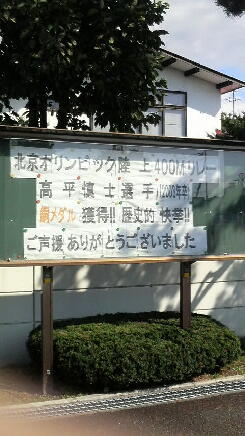 北京オリンピック陸上400Mリレー
高平慎士選手(2003年卒)
銅メダル 獲得!! 歴史的 快挙!!
ご声援 ありがとうございました